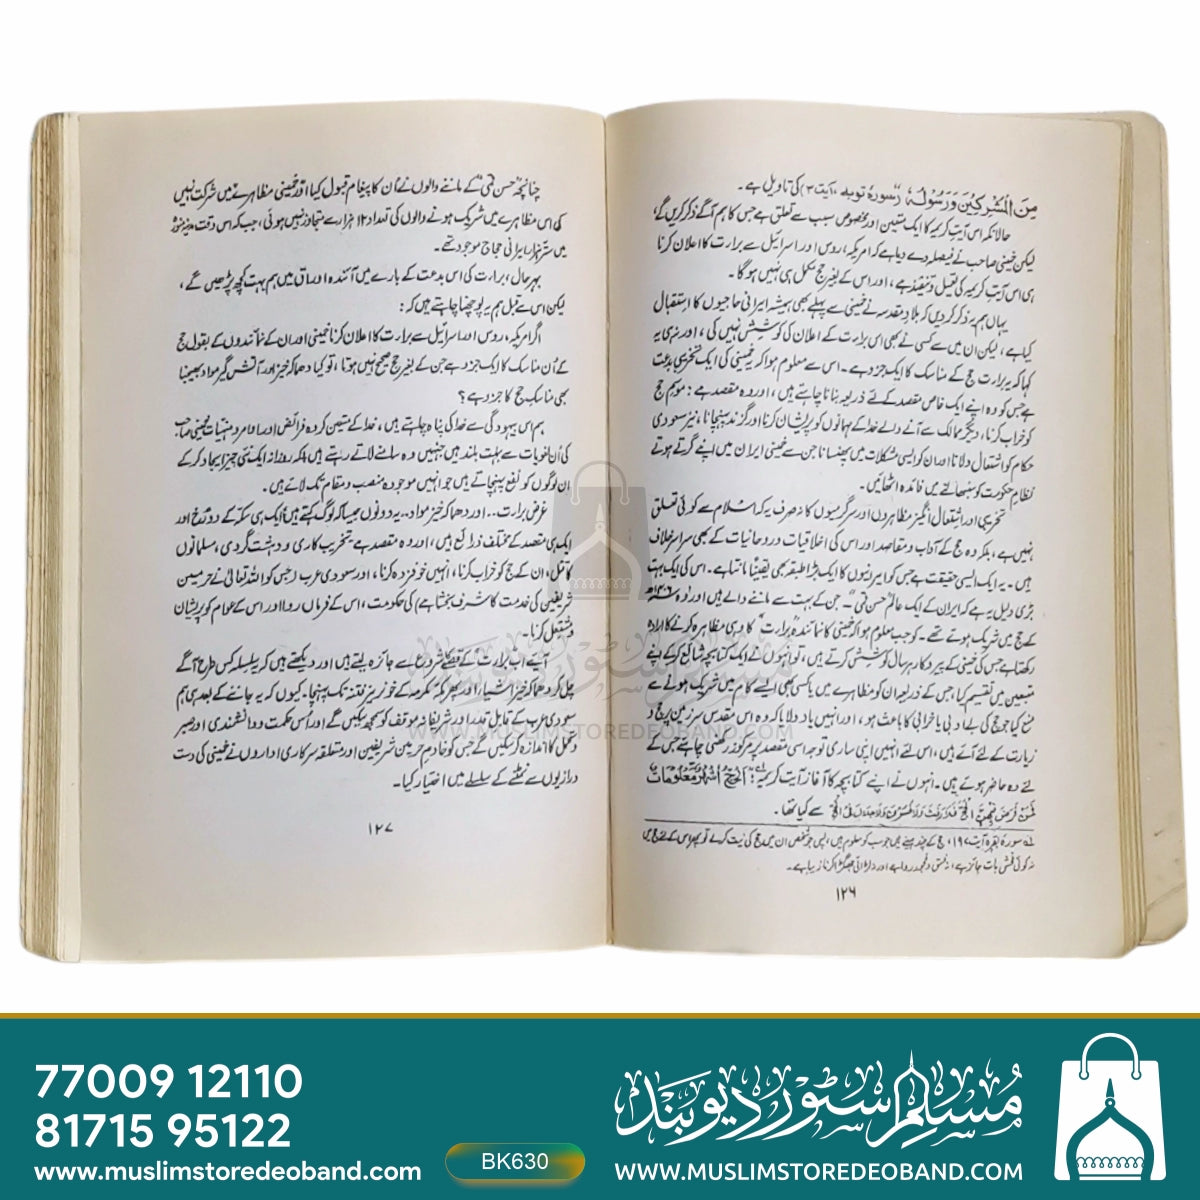 مِنَ الْمُشْرِكِيْنَ وَرَسُوْلُهٗ" (سورہ توبہ ،آیت ۳) کی تاویل ہے۔
حالانکہ اس آیتِ کریمہ کا ایک متعین اور مخصوص سبب سے تعلق ہے جس کا ہم آگے ذکر کریں گے،
لیکن خمینی صاحب نے فیصلہ دے دیا ہے کہ امریکہ، روس اور اسرائیل سے برارت کا اعلان کرنا
ہی اس آیتِ کریمہ کی تعمیل و تنفیذ ہے، اور اس کے بغیر حج مکمل ہی نہیں ہوگا۔
یہاں ہم یہ ذکر کر دیں کہ بلادِ مقدسہ نے خمینی سے پہلے بھی ہمیشہ ایرانی حاجیوں کا استقبال
کیا ہے، لیکن ان میں سے کسی نے بھی اس برارت کے اعلان کی کوشش نہیں کی، اور نہ ہی یہ
کہا کہ یہ برارت حج کے مناسک کا ایک جزر ہے۔ اس سے معلوم ہوا کہ خمینی کی ایک تخریبی بدعت
ہے جس کو وہ اپنے ایک خاص مقصد کے لئے ذریعہ بنانا چاہتے ہیں، اور وہ مقصد ہے: موسم حج
کو خراب کرنا، دیگر ممالک سے آنے والے خدا کے مہمانوں کو پریشان کرنا اور گزند پہنچانا، نیز سعودی
حکام کو اشتعال دلانا اور ان کو ایسی مشکلات میں پھنسانا جن سے خمینی ایران میں اپنے گرتے ہوئے
نظامِ حکومت کو سنبھالنے میں فائدہ اٹھائیں۔
تخریبی اور اشتعال انگیز مظاہروں اور سرگرمیوں کا نہ صرف یہ کہ اسلام سے کوئی تعلق
نہیں ہے، بلکہ وہ حج کے آداب و مقاصد اور اس کی اخلاقیات و روحانیات کے بھی سراسر خلاف
ہیں۔ یہ ایک ایسی حقیقت ہے جس کو ایرانیوں کا ایک بڑا طبقہ بھی یقیناً مانتا ہے۔ اس کی ایک بہت
بڑی دلیل یہ ہے کہ ایران کے ایک عالم "حسن قمی"۔ جن کے بہت سے ماننے والے ہیں اور وہ ۱۴۰۶ھ
کے حج میں شریک ہوئے تھے۔ کو جب معلوم ہوا کہ خمینی کا نمائندہ "برارت" کا وہی مظاہرہ کرنے کا ارادہ
رکھتا ہے جس کی خمینی کے پیروکار ہر سال کوشش کرتے ہیں، تو انہوں نے ایک کتابچہ شائع کر کے اپنے
متبعین میں تقسیم کیا، جس کے ذریعہ ان کو مظاہرے میں یا کسی بھی ایسے کام میں شریک ہونے سے
منع کیا جو حج کی بے ادبی یا خرابی کا باعث ہو، اور انہیں یاد دلایا کہ وہ اس مقدس سرزمین پر حج و
زیارت کے لئے آئے ہیں، اس لئے انہیں اپنی ساری توجہ اسی مقصد پر مرکوز رکھنی چاہئے جس کے
لئے وہ حاضر ہوئے ہیں۔ انہوں نے اپنے کتابچہ کا آغاز آیت کریمہ: "اَلْحَجُّ اَشْهُرٌ مَّعْلُوْمَاتٌ
فَمَنْ فَرَضَ فِيْهِنَّ الْحَجَّ فَلَا رَفَثَ وَلَا فُسُوْقَ وَلَا جِدَالَ فِي الْحَجِّ" سے کیا تھا۔
لے سورہ بقرہ آیت ۱۹۷، حج کے چند مہینے ہیں جو سب کو معلوم ہیں، پس جو شخص ان میں حج کی نیت کرے تو پھر اس کے لئے حج میں
نہ کوئی فحش بات جائز ہے، نہ فسق و فجور روا ہے اور نہ لڑائی جھگڑا کرنا زیبا ہے۔
۱۲۶
چنانچہ "حسن قمی" کے ماننے والوں نے اُن کا پیغام قبول کیا اور خمینی مظاہرے میں شرکت نہیں
کی اس مظاہرے میں شریک ہونے والوں کی تعداد ۱۲ ہزار سے متجاوز نہیں ہوئی، جب کہ اس وقت مدینہ منورہ
میں ستر ہزار ایرانی حجاج موجود تھے۔
بہرحال، برارت کی اس بدعت کے بارے میں آئندہ اوراق میں ہم بہت کچھ پڑھیں گے،
لیکن اس سے قبل ہم یہ پوچھنا چاہتے ہیں کہ:
اگر امریکہ، روس اور اسرائیل سے برارت کا اعلان کرنا خمینی اور ان کے نمائندوں کے بقول حج
کے اُن مناسک کا ایک جزر ہے جن کے بغیر حج صحیح نہیں ہوتا، تو کیا دھماکہ خیز اور آتش گیر مواد بھیجنا
بھی مناسکِ حج کا جزر ہے؟
ہم اس بیہودگی سے خدا کی پناہ چاہتے ہیں، خدا کے متعین کردہ فرائض اور اوامر و منہیات خمینی صاحب
کی اُن لغویات سے بہت بلند ہیں جنہیں وہ سامنے لاتے رہتے ہیں بلکہ روزانہ ایک نئی چیز ایجاد کر کے
ان لوگوں کو نفع پہنچاتے ہیں جو انہیں موجودہ منصب و مقام تک لائے ہیں۔
غرض برارت.. اور دھماکہ خیز مواد.. یہ دونوں جیسا کہ لوگ کہتے ہیں: ایک ہی سکہ کے دو رُخ اور
ایک ہی مقصد کے مختلف ذرائع ہیں، اور وہ مقصد ہے تخریب کاری و دہشت گردی، مسلمانوں
کا قتل، ان کے حج کو خراب کرنا، انہیں خوفزدہ کرنا، اور سعودی عرب (جس کو اللہ تعالیٰ نے حرمین
شریفین کی خدمت کا شرف بخشا ہے) کی حکومت، اس کے فرماں روا اور اس کے عوام کو پریشان
و مشتعل کرنا۔
آیئے اب "برارت" کے قصے کا شروع سے جائزہ لیتے ہیں اور دیکھتے ہیں کہ یہ سلسلہ کس طرح آگے
چل کر دھماکہ خیز اشیار اور پھر مکہ مکرمہ کے خوزیز فتنہ تک پہنچا۔ کیوں کہ یہ جاننے کے بعد ہی ہم
سعودی عرب کے قابلِ قدر اور شریفانہ موقف کو سمجھ سکیں گے اور اُس حکمت و دانشمندی اور صبر
و تحمل کا اندازہ کر سکیں گے جس کو خادمِ حرمین شریفین اور متعلقہ سرکاری اداروں نے خمینی کی دست
درازیوں سے نمٹنے کے سلسلے میں اختیار کیا۔
۱۲۷
مسلم سٹور دیوبند
WWW.MUSLIMSTOREDEOBAND.COM
77009 12110
81715 95122
www.muslimstoredeoband.com
BK630
مسلم سٹور دیوبند
WWW.MUSLIMSTOREDEOBAND.COM